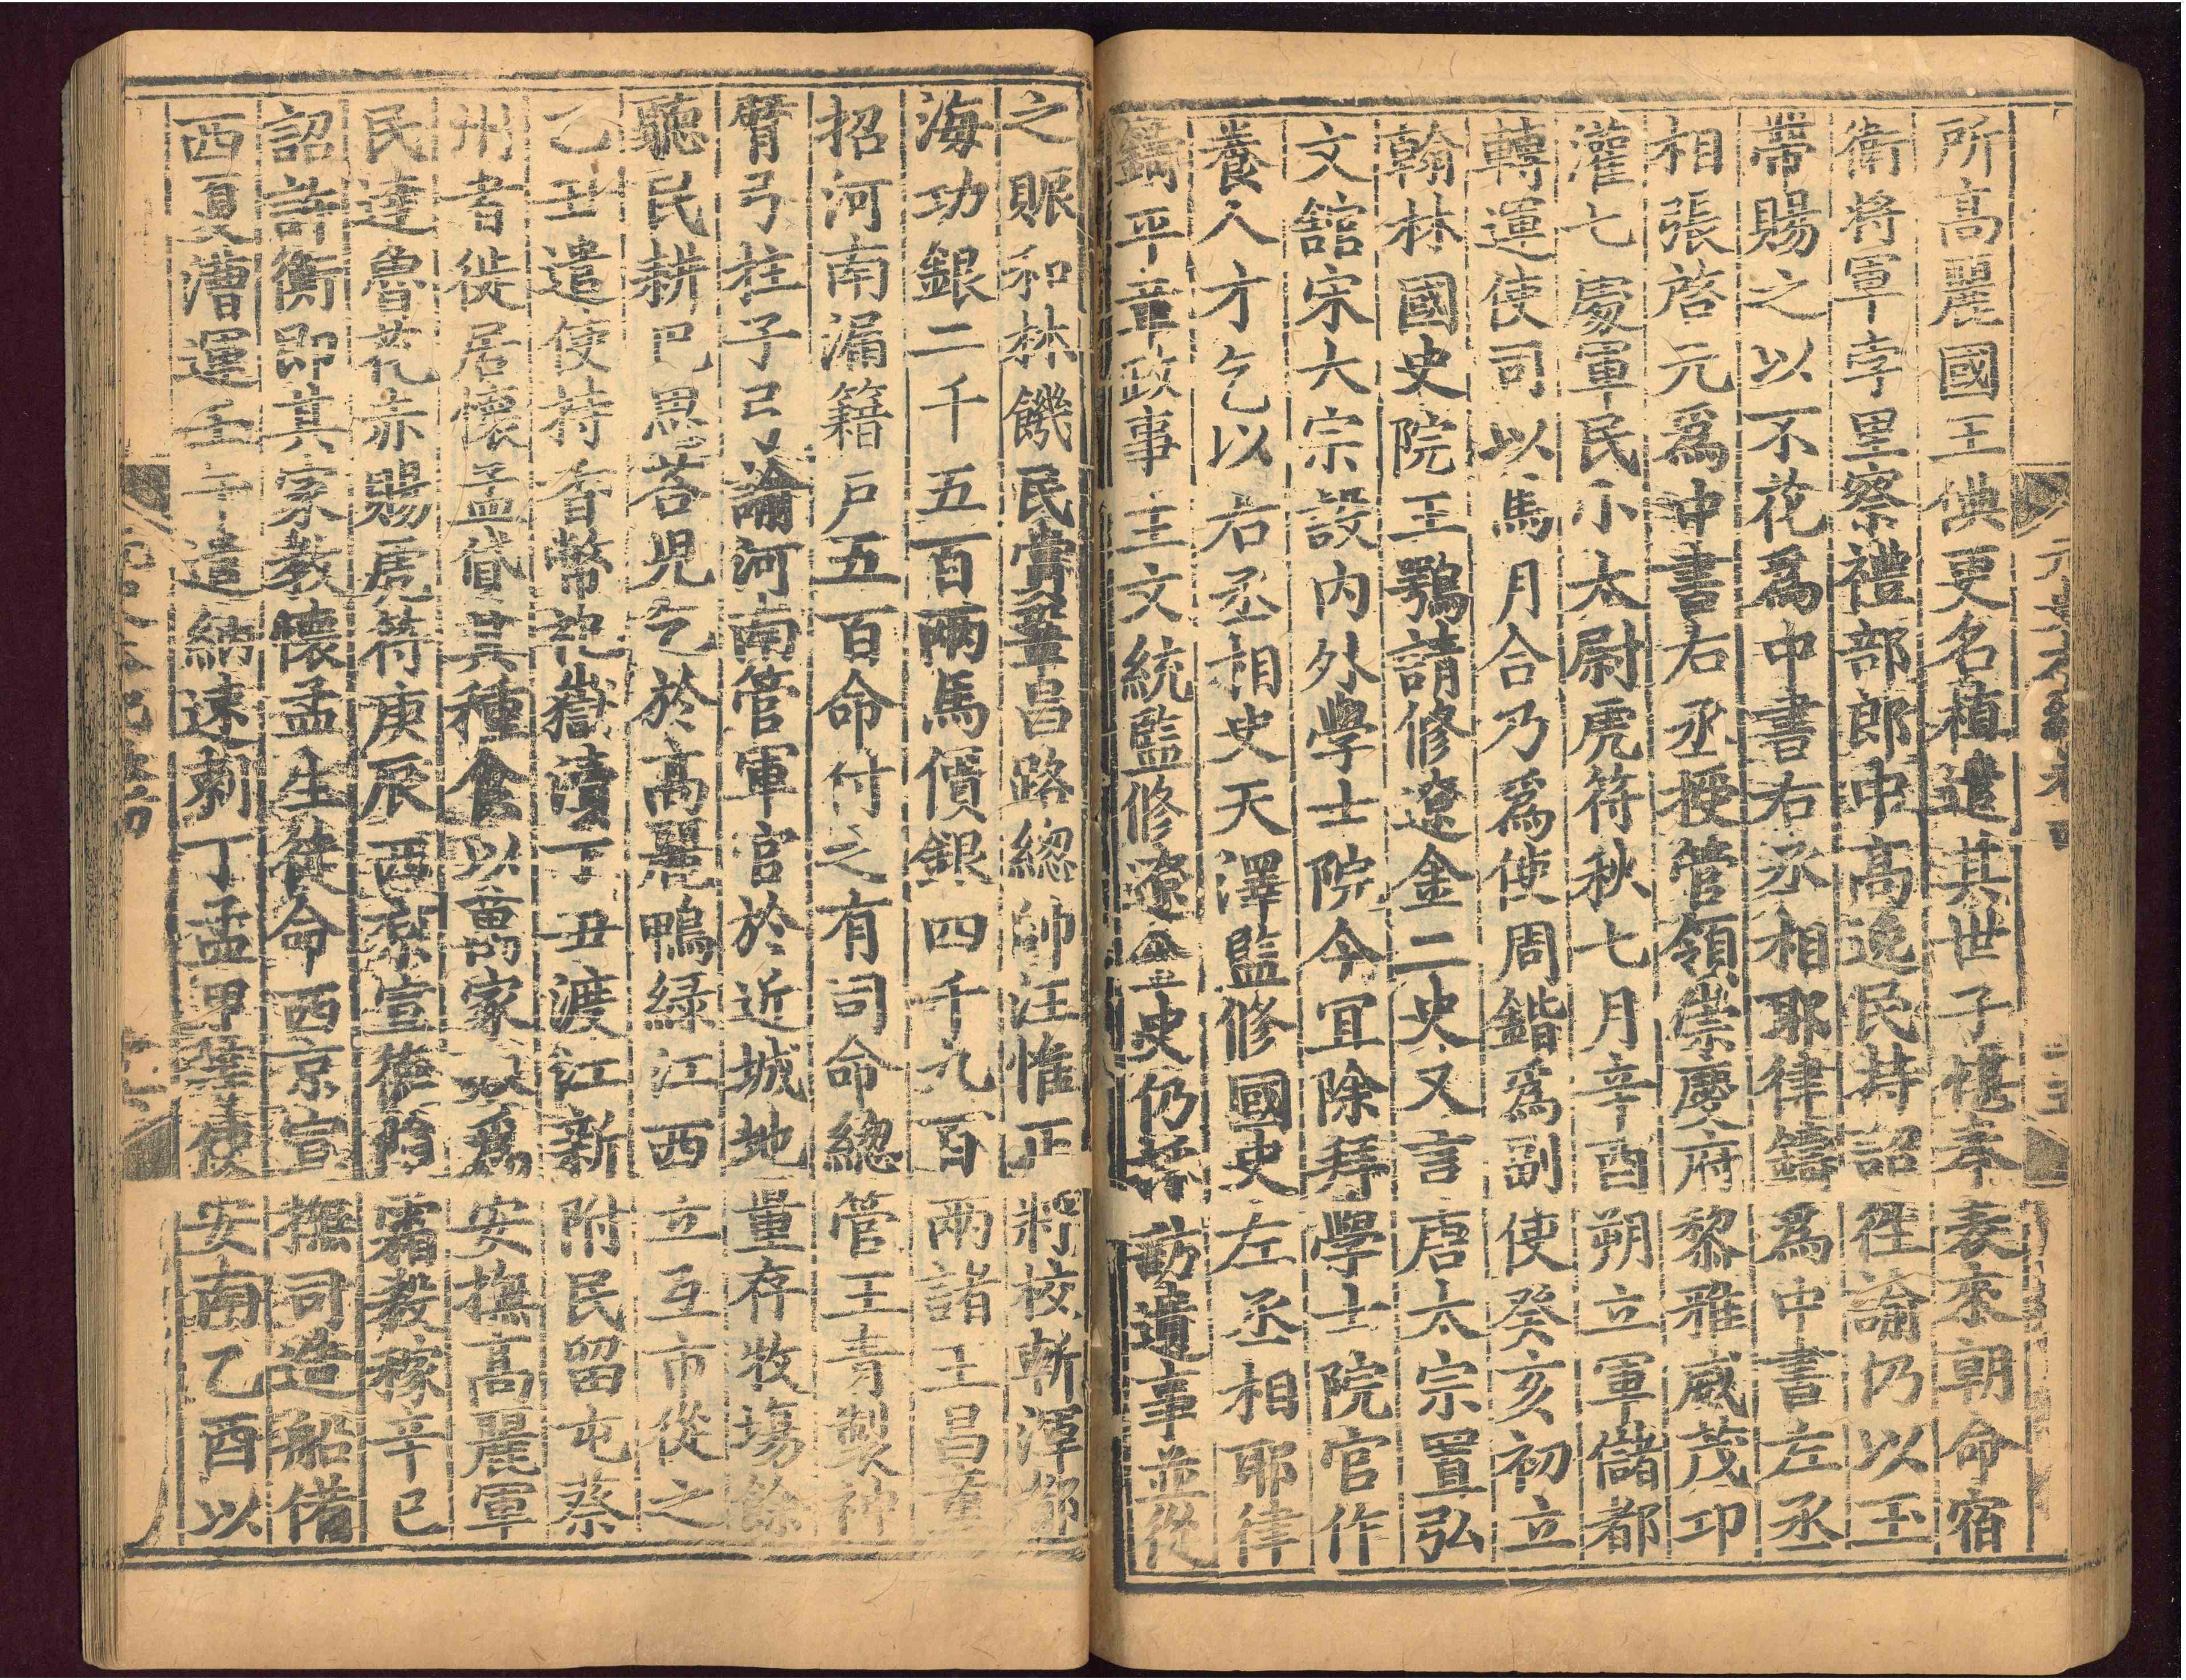 所高麗國王倎更名植遣其世子愖奉表來朝命宿
衛將軍孛里察禮部郎中高逸民持詔徃諭仍以玉
帶賜之以不花爲中書右丞相耶律鑄爲中書左丞
相張啓元爲中書右丞授管領崇慶府黎雅威茂邛
灌七處軍民小太尉虎符秋七月辛酉朔立軍儲都
轉運使司以馬月合乃爲使周鍇爲副使癸亥初立
翰林國史院王鶚請修遼金二史又言唐太宗置弘
文館宋太宗設內外學士院今宜除拜學士院官作
養人才乞以右丞相史天澤監修國史左丞相耶律
鑄平章政事王文統監修遼金史仍採訪遺事並從
之賑和林饑民賞鞏昌路總帥汪惟正將校斬渾都
海功銀二千五百兩馬價銀四千九百兩諸王昌童
招河南漏籍戶五百命付之有司命總管王青製神
臂弓柱子弓諭河南管軍官於近城地量存牧場餘
聽民耕巴思荅兒乞於高麗鴨綠江西立互市從之
乙丑遣使持香幣祀嶽瀆丁丑渡江新附民留屯蔡
州者徙居懷孟貸其種食以萬家奴爲安撫高麗軍
民達魯花赤賜虎符庚辰西京宣德隕霜殺稼辛巳
詔許衡即其家教懷孟生徒命西京宣撫司造船備
西夏漕運壬午遣納速剌丁孟甲等使安南乙酉以